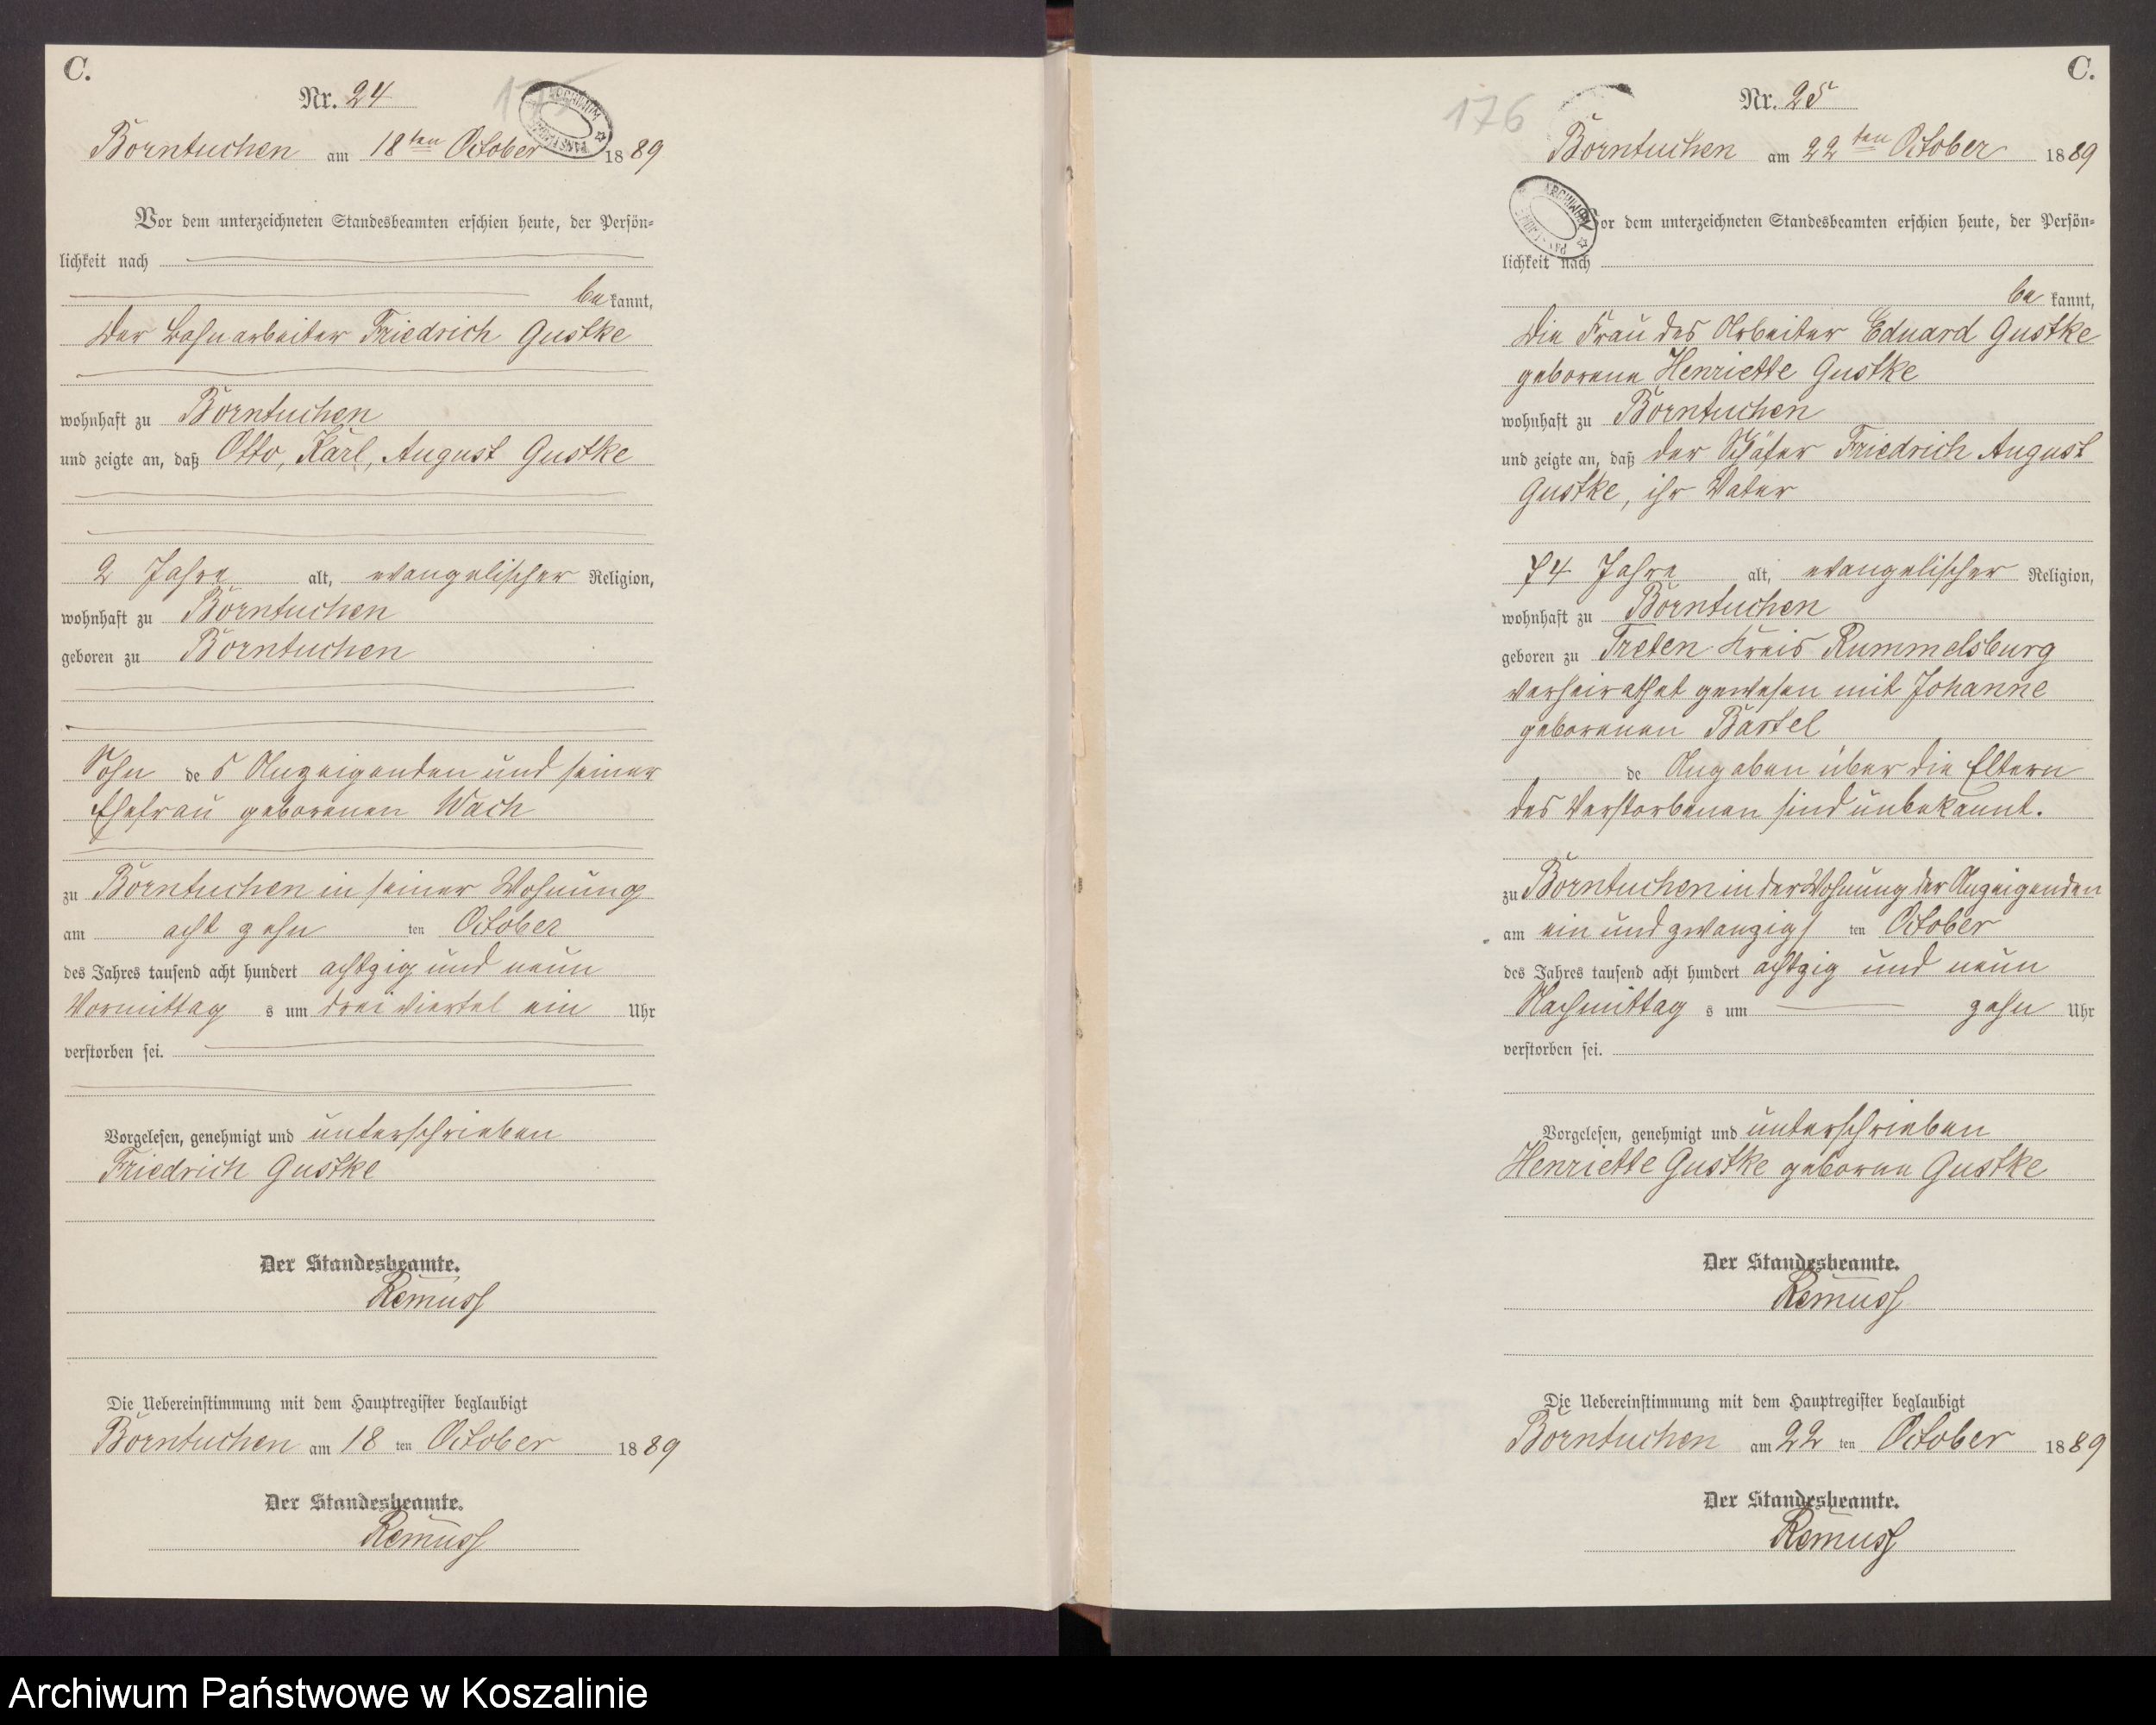 C.
Nr. 24
175
Borntuchen am 18ten October 1889
Vor dem unterzeichneten Standesbeamten erschien heute, der Persön-
lichkeit nach
bekannt,
der Bahnarbeiter Friedrich Gustke
wohnhaft zu Borntuchen
und zeigte an, daß Otto, Karl, August Gustke
2 Jahre alt, evangelischer Religion,
wohnhaft zu Borntuchen
geboren zu Borntuchen
Sohn des Anzeigenden und seiner
Ehefrau geborenen Wach
zu Borntuchen in seiner Wohnung
am acht zehn ten October
des Jahres tausend acht hundert achtzig und neun
Vormittags um drei viertel ein Uhr
verstorben sei.
Vorgelesen, genehmigt und unterschrieben
Friedrich Gustke
Der Standesbeamte.
Remuss
Die Uebereinstimmung mit dem Hauptregister beglaubigt
Borntuchen am 18 ten October 1889
Der Standesbeamte.
Remuss
C.
176
Nr. 25
Borntuchen am 22ten October 1889
ARCHIWUM
Vor dem unterzeichneten Standesbeamten erschien heute, der Persön-
lichkeit nach
bekannt,
die Frau des Arbeiter Eduard Gustke
geborene Henriette Gustke
wohnhaft zu Borntuchen
und zeigte an, daß der Schäfer Friedrich August
Gustke, ihr Vater
74 Jahre alt, evangelischer Religion,
wohnhaft zu Borntuchen
geboren zu Treten Kreis Rummelsburg
verheirathet gewesen mit Johanne
geborenen Bartel
de Angaben über die Eltern
des Verstorbenen sind unbekannt.
zu Borntuchen in der Wohnung der Anzeigenden
am ein und zwanzigs ten October
des Jahres tausend acht hundert achtzig und neun
Nachmittags um zehn Uhr
verstorben sei.
Vorgelesen, genehmigt und unterschrieben
Henriette Gustke geborene Gustke
Der Standesbeamte.
Remuss
Die Uebereinstimmung mit dem Hauptregister beglaubigt
Borntuchen am 22 ten October 1889
Der Standesbeamte.
Remuss
Archiwum Państwowe w Koszalinie